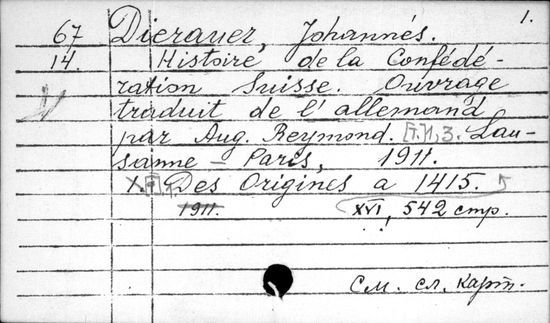 1.
67 Dierauer, Johannés.
14. Histoire de la Confédé-
ration Suisse. Ouvrage
traduit de l'allemand
par Aug. Reymond. [T.]1,3. Lau-
sanne – Paris, 1911.
Des Origines a 1415.
1911. XVI, 542 стр.
См. сл. карт.